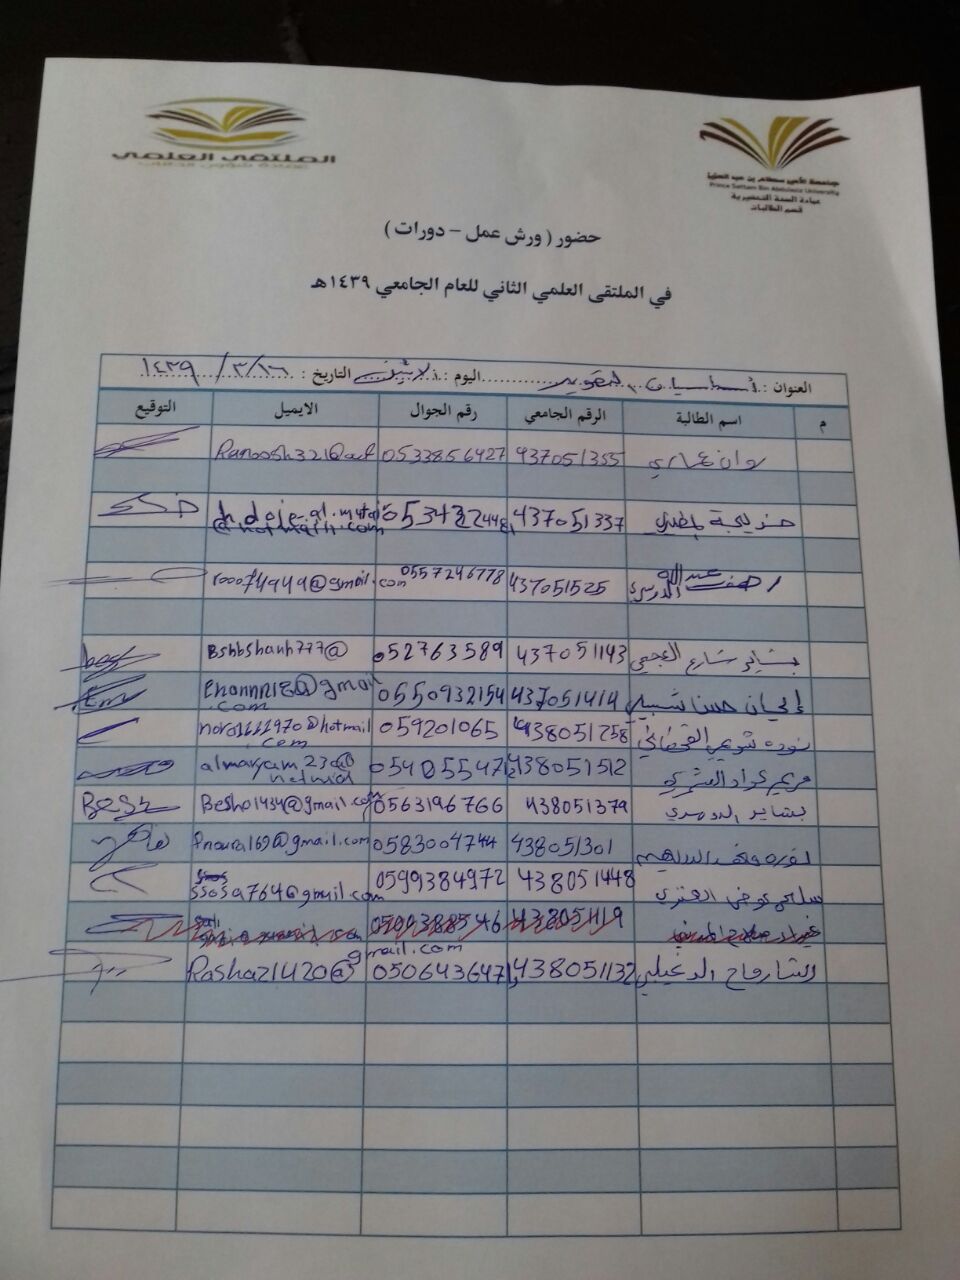 الملتقى العلمي
عمادة شؤون الطلاب
جامعة الأمير سطام بن عبد العزيز
Prince Sattam Bin Abdulaziz University
عمادة السنة التحضيرية
قسم الطالبات
حضور ( ورش عمل – دورات )
في الملتقى العلمي الثاني للعام الجامعي ١٤٣٩هـ
العنوان : أساسيات التصوير اليوم : الاثنين التاريخ : ١٦/٣/١٤٣٩
م اسم الطالبة الرقم الجامعي رقم الجوال الايميل التوقيع
437051355 0533856427 Ranoosh321@
خديجة المطيري 437051337
عبدالله الدوسري 437051525 0557246778 r00074949@gmail.com
بشاير شارع العجمي 437051143 052763589 Bshbshanh777@
إيمان حسن 437051414 0550932154 @gmail.com
نوره شويمي القحطاني 438051258 059201065 nora1111970@hotmail.com
مريم عواد الشمري 438051512 almaryam23
بشاير الدوسري 438051379 0563196766 Besho1434@gmail.com Besh
نوره فهد البراهيم 438051301 0583004744 fnoura169@gmail.com
سلمى عوض العنزي 438051448 0599384972 sso3a7646@gmail.com
الدغيلبي 438051132 0506436471 Rasha21420@gmail.com